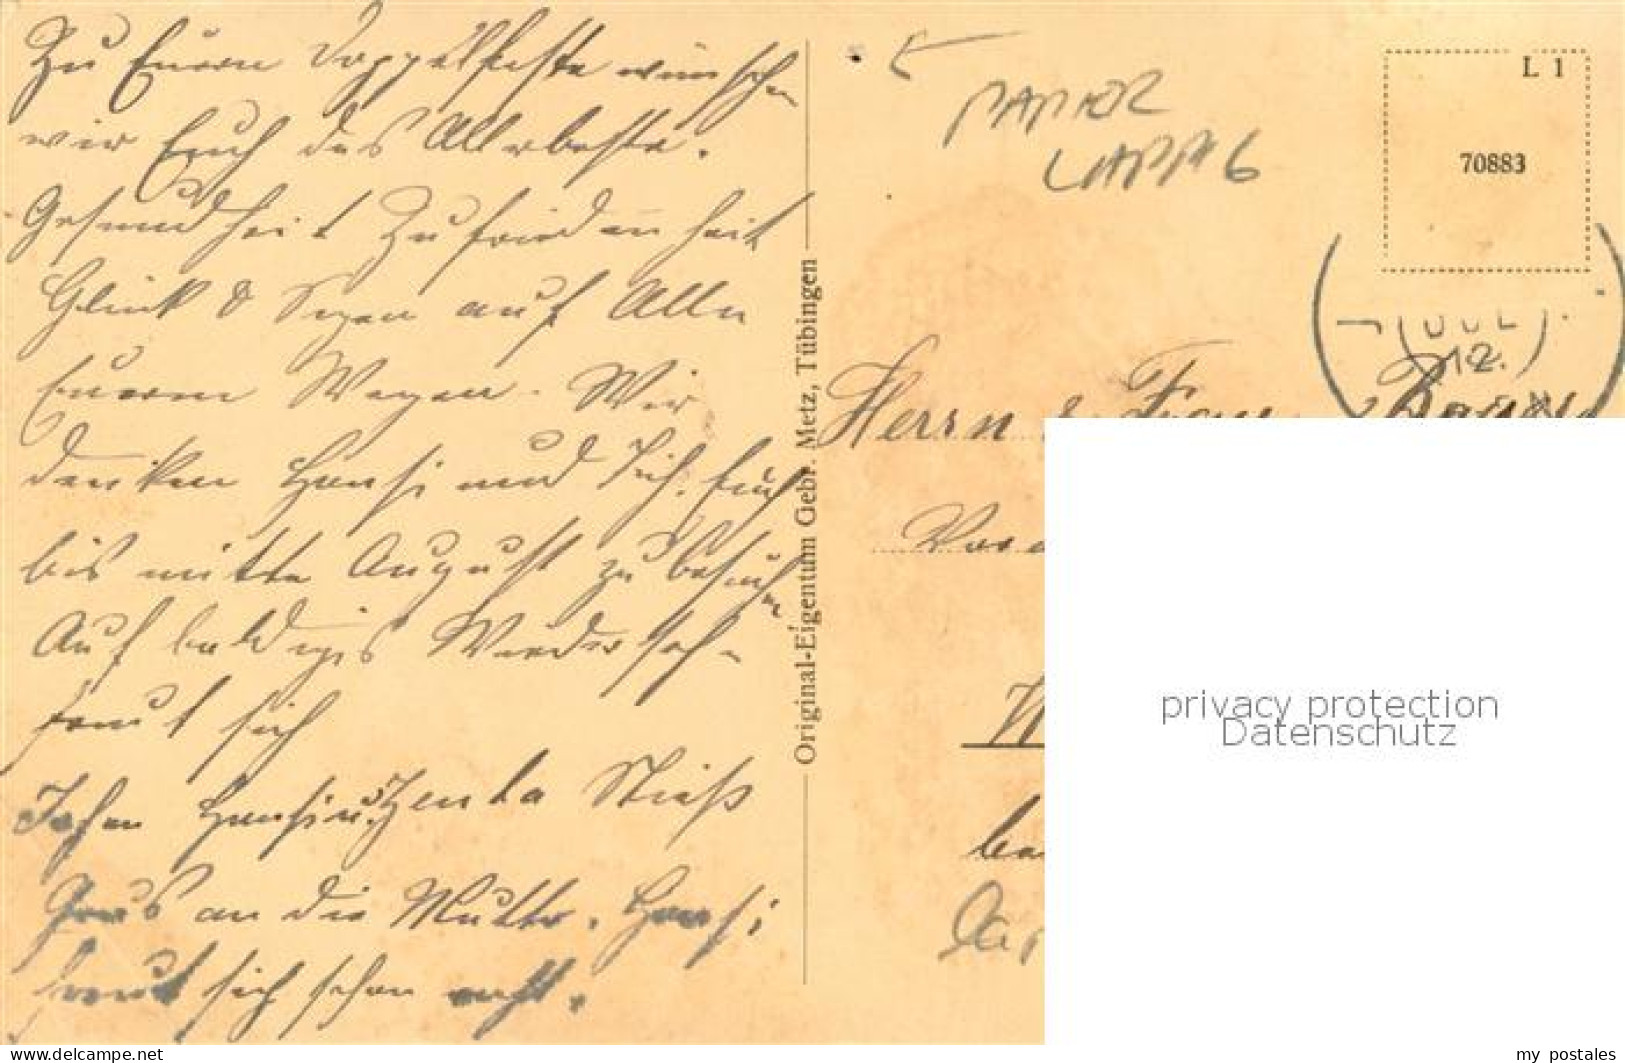 Zu Eurem Doppelfeste wünschen
wir Euch das Allerbeste.
Gesundheit Zufriedenheit
Glück & Segen auf Allen
Euern Wegen. Wir
denken Hansi und Ich. Euch
bis mitte August zu besuchen
Auf baldiges Wiedersehn
freut sich
Hansi u. Zenta
Grus an die Mutter. Hansi
freut sich schon recht.
Original-Eigentum Gebr. Metz, Tübingen
PAPIER
L 1
70883
12.
Herrn & Frau
privacy protection
Datenschutz
www.delcampe.net
my_postales